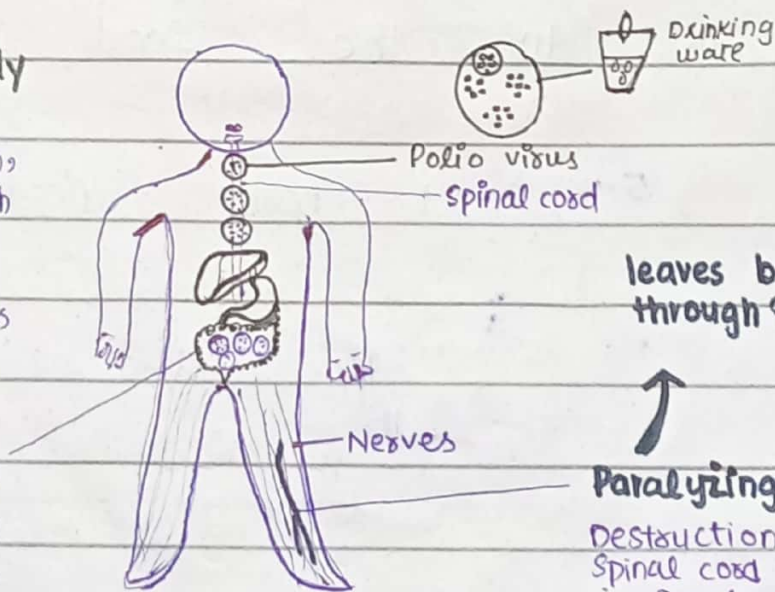 ly
Drinking
wate
Polio virus
Spinal cord
leaves b
through
s
Nerves
Paralyzing
Destruction
Spinal cord